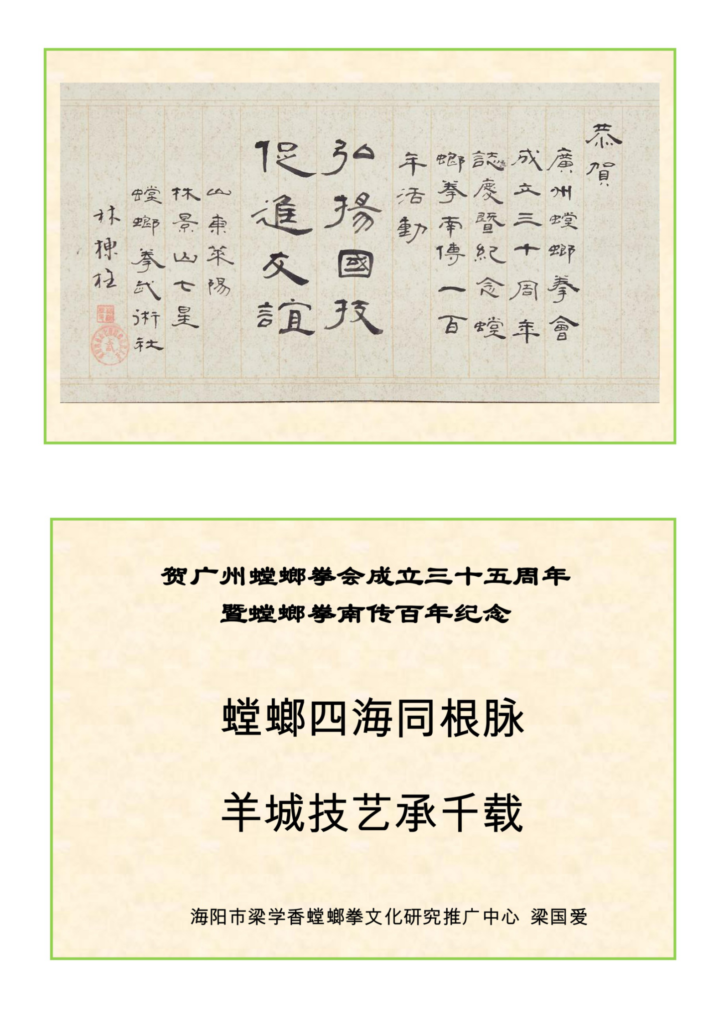 恭賀
廣州螳螂拳會
成立三十周年
誌慶暨紀念螳
螂拳南傳一百
年活動
弘揚國技
促進友誼
山東萊陽
林景山七星
螳螂拳武術社
林棟柱
贺广州螳螂拳会成立三十五周年
暨螳螂拳南传百年纪念
螳螂四海同根脉
羊城技艺承千载
海阳市梁学香螳螂拳文化研究推广中心 梁国爱